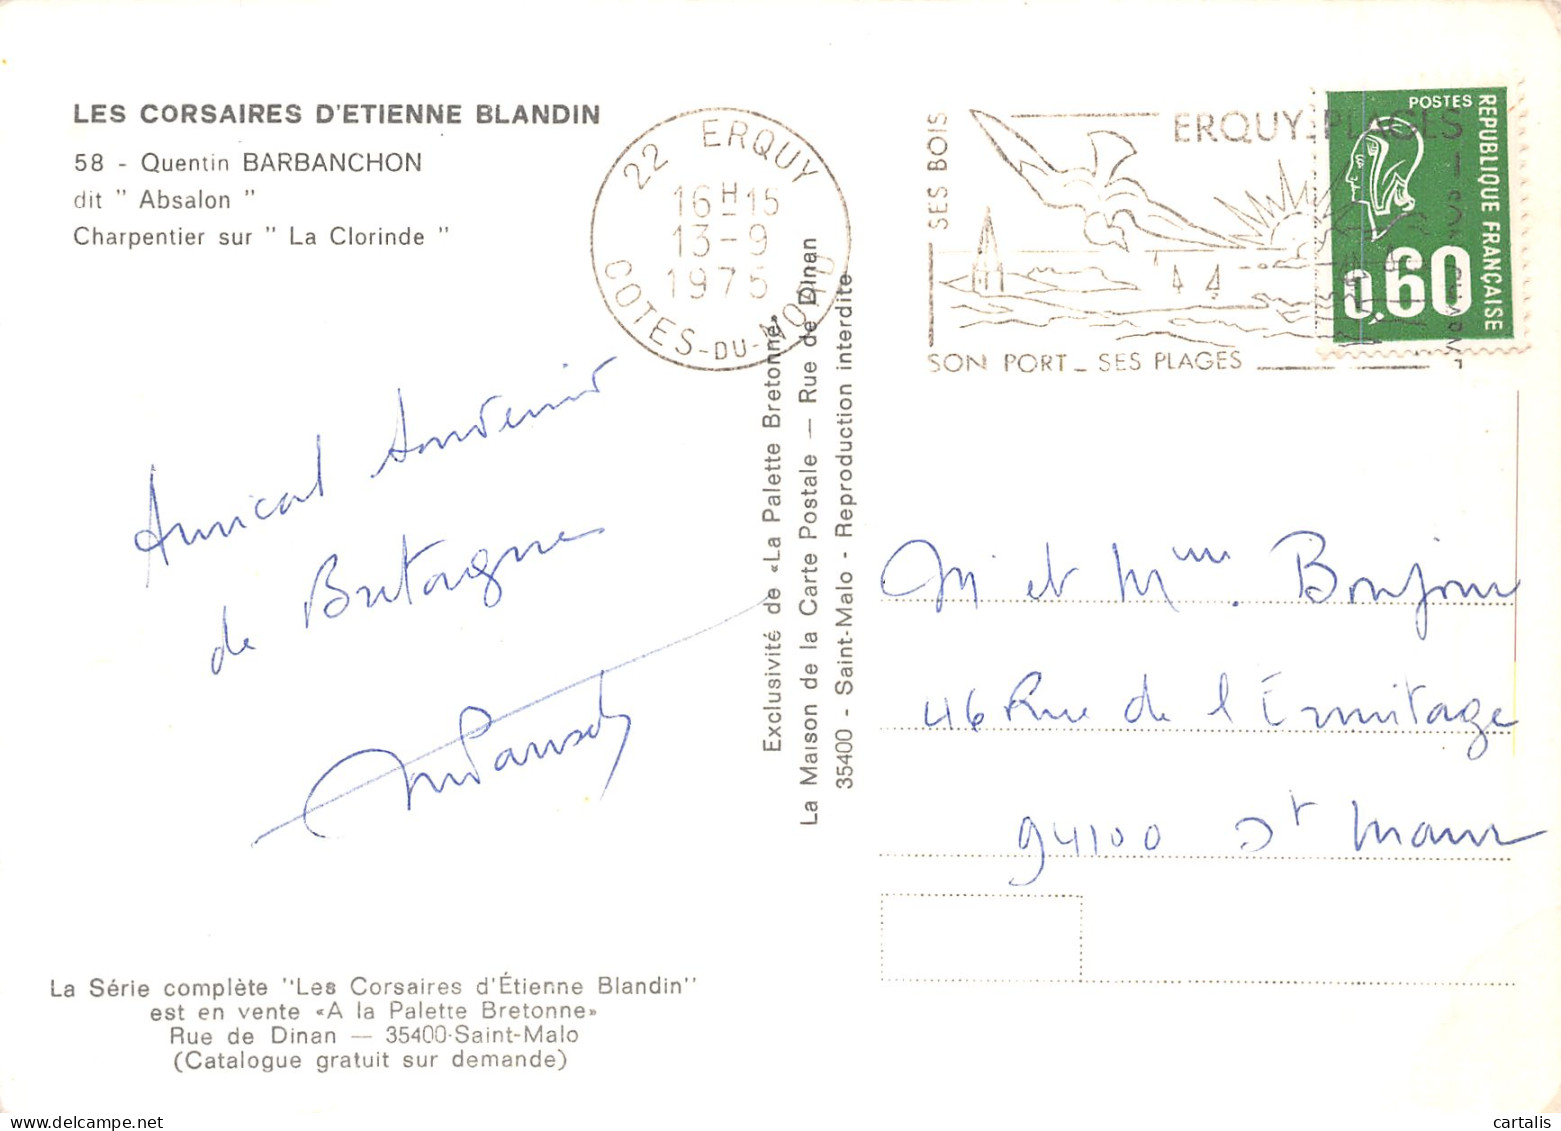 LES CORSAIRES D'ETIENNE BLANDIN
58 - Quentin BARBANCHON
dit " Absalon "
Charpentier sur " La Clorinde "
22 ERQUY
16H15
13-9
1975
COTES-DU-NORD
SES BOIS
ERQUY_PLAGES
SON PORT_ SES PLAGES
POSTES
REPUBLIQUE FRANÇAISE
0,60
Amical Souvenir
de Bretagne
Exclusivité de «La Palette Bretonne»
La Maison de la Carte Postale — Rue de Dinan
35400 - Saint-Malo - Reproduction interdite
M et Mme. Bonjour
46 Rue de l Ermitage
94100 St Maur
La Série complète "Les Corsaires d'Étienne Blandin"
est en vente «A la Palette Bretonne»
Rue de Dinan — 35400-Saint-Malo
(Catalogue gratuit sur demande)
cartalis